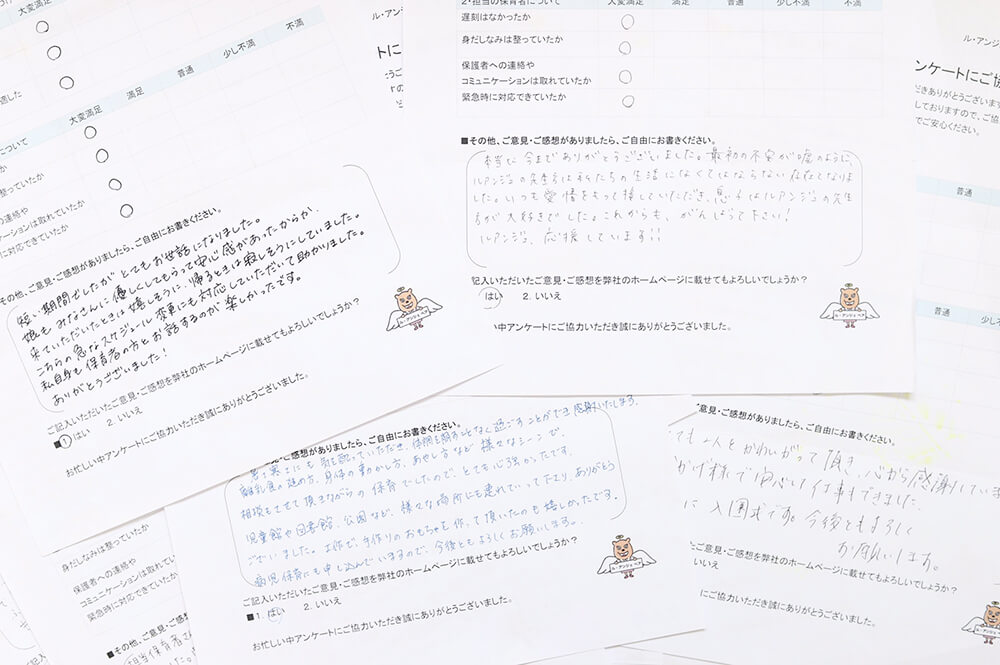 大変満足
満足
普通
少し不満
不満
大変満足
満足
普通
について
整っていたか
の連絡や
ケーションは取れていたか
に対応できていたか
その他、ご意見・ご感想がありましたら、ご自由にお書きください。
短い期間でしたが とてもお世話になりました。
娘も みなさんに 優しくしてもらって 安心感があったからか、
来ていただいたときは 嬉しそうに、帰るときは 寂しそうにしていました。
こちらの 急なスケジュール変更にも対応していただいて助かりました。
私自身も 保育者の方と お話するのが 楽しかったです。
ありがとうございました!
ご記入いただいたご意見・ご感想を弊社のホームページに載せてもよろしいでしょうか?
■1 はい 2. いいえ
お忙しい中アンケートにご協力いただき誠にありがとうございました。
ル・アンジェ ベア
2・担当の保育者について
大変満足
満足
普通
少し不満
不満
遅刻はなかったか
身だしなみは整っていたか
保護者への連絡や
コミュニケーションは取れていたか
緊急時に対応できていたか
■その他、ご意見・ご感想がありましたら、ご自由にお書きください。
本当に 今まで ありがとうございました。最初の不安が嘘のように、
ルアンジェの先生方は私たちの生活になくてはならない存在となりま
した。いつも愛情をもって接していただき、息子はルアンジェの先生
方が大好きでした。これからも、がんばって下さい!
ルアンジェ、応援しています!!
記入いただいたご意見・ご感想を弊社のホームページに載せてもよろしいでしょうか?
はい 2. いいえ
い中アンケートにご協力いただき誠にありがとうございました。
ル・アンジェ ベア
ンケートにご協
だきありがとうございます
しておりますので、ご協力
でご安心ください。
普通
普通
少し
感想がありましたら、ご自由にお書きください。
暑さ寒さにも気を配っていただき、体調を崩すことなく過ごすことができ 感謝いたします。
離乳食の進め方、身体の動かし方、あやし方など 様々なシーンで、
相談もさせて頂きながらの 保育でしたので、とても心強かったです。
児童館や図書館、公園など、様々な場所にも連れていって下さり、ありがとう
ございました。工作で、手作りのおもちゃを作って頂いたのも嬉しかったです。
病児保育にも申し込んでいますので、今後ともよろしくお願いします。
ご記入いただいたご意見・ご感想を弊社のホームページに載せてもよろしいでしょうか?
■1. はい 2. いいえ
お忙しい中アンケートにご協力いただき誠にありがとうございました。
ル・アンジェ ベア
ご意見・ご感想がありましたら、ご自由にお書きください。
ても2人をかわいがって頂き、心から感謝しています
かげ様で安心して仕事もできました。
に入園式です。今後ともよろしく
お願いします。
たご意見・ご感想を弊社のホームページに載せてもよろしいでしょうか?
いいえ
にご協力いただき誠にありがとうございました。
身だしなみは整っていたか
保護者への連絡や
コミュニケーションは取れてい
緊急時に対応できていたか
■その他、ご意見・ご感
担当保育者さ